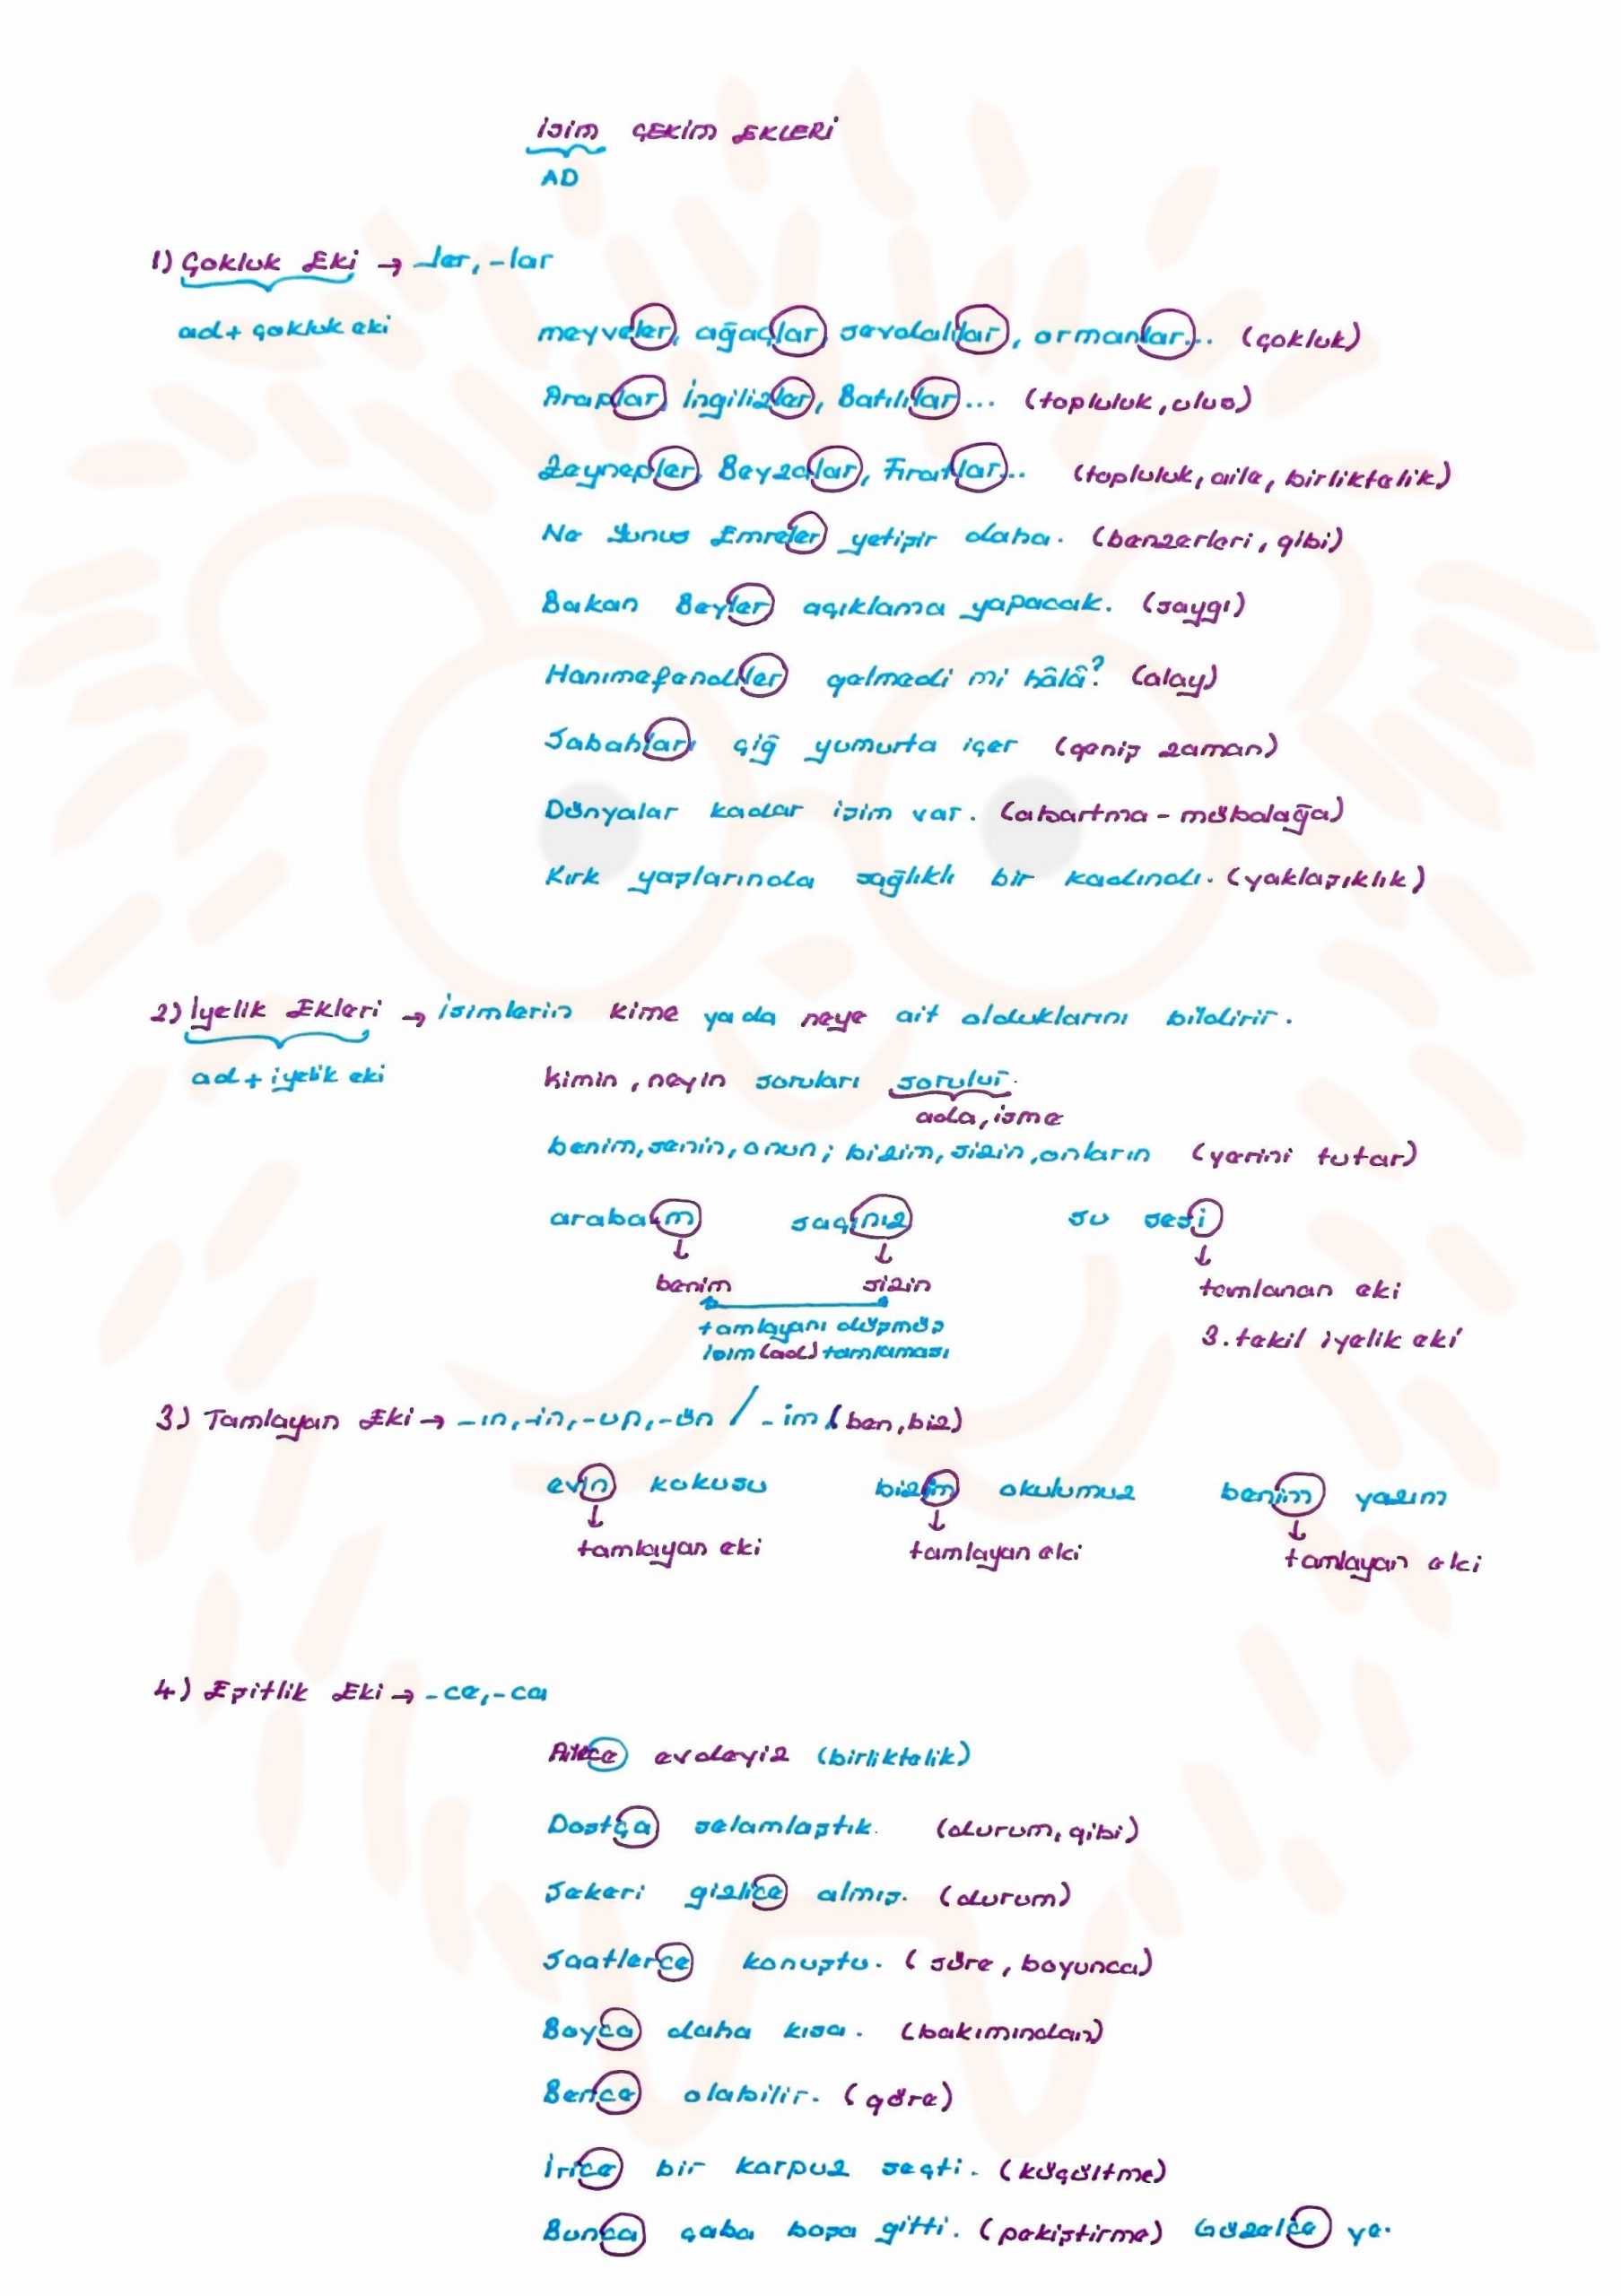 İSİM ÇEKİM EKLERİ
AD
1) Çokluk Eki → -ler, -lar
ad + çokluk eki
meyveler, ağaçlar, sevdalılar, ormanlar... (çokluk)
Araplar, İngilizler, Batılılar... (topluluk, ulus)
Zeynepler, Beyzalar, Fıratlar... (topluluk, aile, birliktelik)
Ne Yunus Emreler yetişir daha. (benzerleri, gibi)
Bakan Beyler açıklama yapacak. (saygı)
Hanımefendiler gelmedi mi hâlâ? (alay)
Sabahları çiğ yumurta içer (geniş zaman)
Dünyalar kadar işim var. (abartma - mübalağa)
Kırk yaşlarında sağlıklı bir kadındı. (yaklaşıklık)
2) İyelik Ekleri → İsimlerin kime ya da neye ait olduklarını bildirir.
ad + iyelik eki
kimin, neyin soruları sorulur.
ada, isme
benim, senin, onun; bizim, sizin, onların (yerini tutar)
arabam saçınız su sesi
↓ ↓ ↓
benim sizin tamlanan eki
tamlayanı düşmüş
isim (ad) tamlaması
3. tekil iyelik eki
3) Tamlayan Eki → -ın, -in, -un, -ün / -im (ben, biz)
evin kokusu bizim okulumuz benim yazım
↓ ↓ ↓
tamlayan eki tamlayan eki tamlayan eki
4) Eşitlik Eki → -ce, -ca
Ailece evdeyiz (birliktelik)
Dostça selamlaştık. (durum, gibi)
Şekeri gizlice almış. (durum)
Saatlerce konuştu. (süre, boyunca)
Boyca daha kısa. (bakımından)
Bence olabilir. (göre)
İrice bir karpuz seçti. (küçültme)
Bunca çaba boşa gitti. (pekiştirme) Güzelce ye.